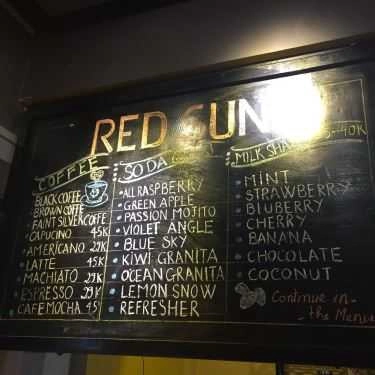 RED SUN
COFFEE
BLACK COFFE
BROWN COFFE
FAINT SILVER COFFE
CAPUCINO 45K
AMERICANO 29K
LATTE 45K
MACHIATO 29K
ESPRESSO 29K
CAFE MOCHA 45
SODA
ALL RASPBERRY
GREEN APPLE
PASSION MOJITO
VIOLET ANGLE
BLUE SKY
KIWI GRANITA
OCEAN GRANITA
LEMON SNOW
REFRESHER
MILK SHA
MINT
STRAWBERRY
BLUBERRY
CHERRY
BANANA
CHOCOLATE
COCONUT
Continue in
the Menu